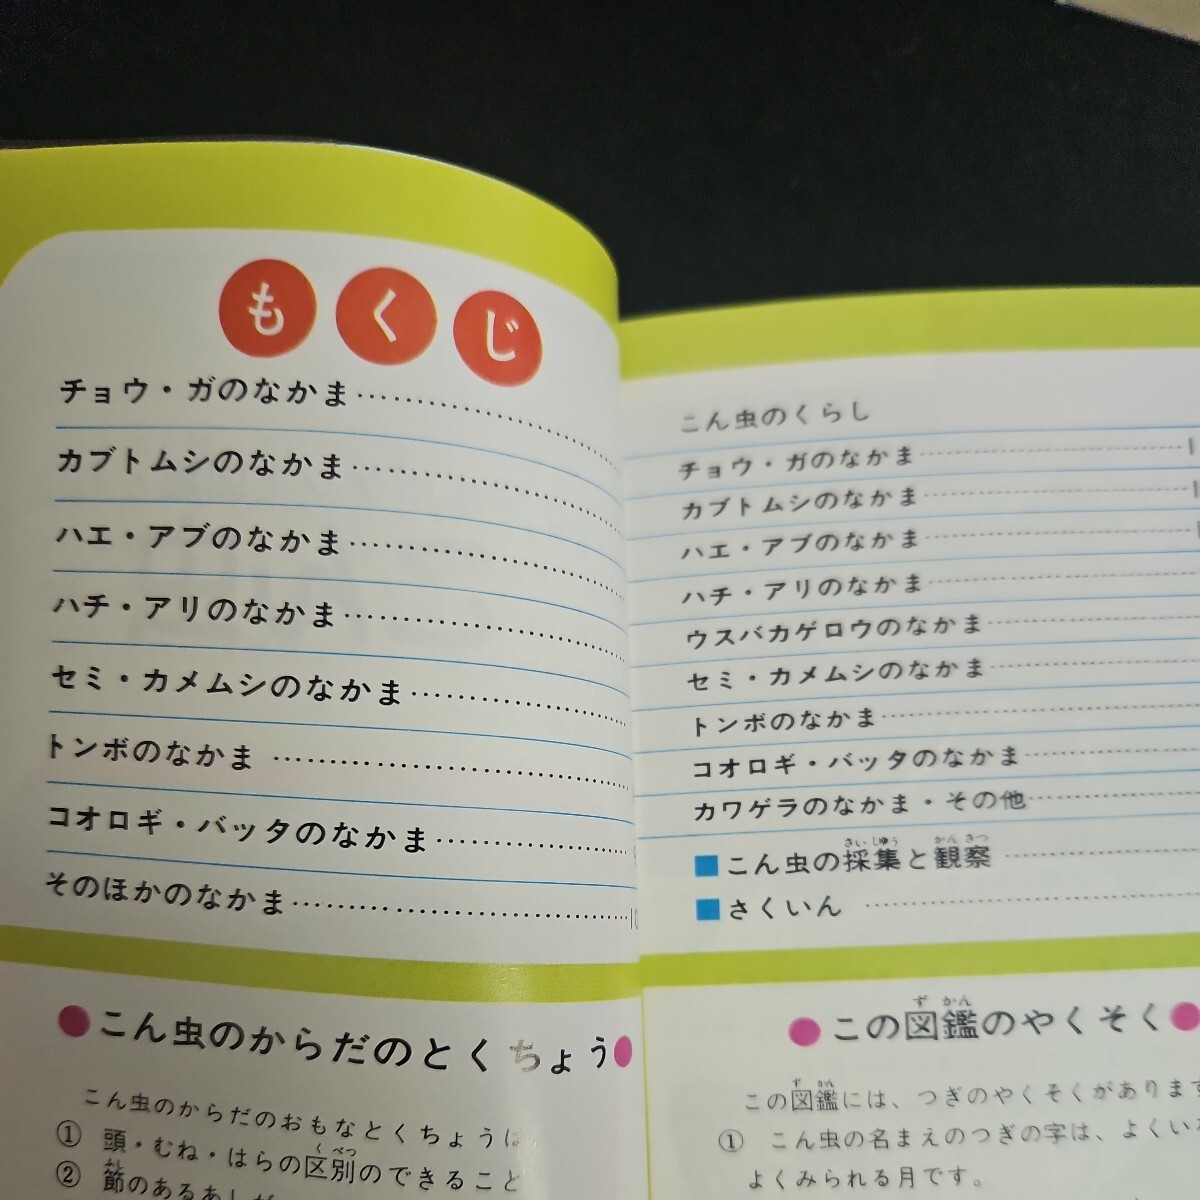 もくじ
チョウ・ガのなかま
カブトムシのなかま
ハエ・アブのなかま
ハチ・アリのなかま
セミ・カメムシのなかま
トンボのなかま
コオロギ・バッタのなかま
そのほかのなかま
●こん虫のからだのとくちょう●
こん虫のからだのおもなとくちょうは
① 頭・むね・はらの区別のできること
② 節のあるあしが
こん虫のくらし
チョウ・ガのなかま
カブトムシのなかま
ハエ・アブのなかま
ハチ・アリのなかま
ウスバカゲロウのなかま
セミ・カメムシのなかま
トンボのなかま
コオロギ・バッタのなかま
カワゲラのなかま・その他
■こん虫の採集と観察
■さくいん
●この図鑑のやくそく●
この図鑑には、つぎのやくそくがあります
① こん虫の名まえのつぎの字は、よくいる
よくみられる月です。